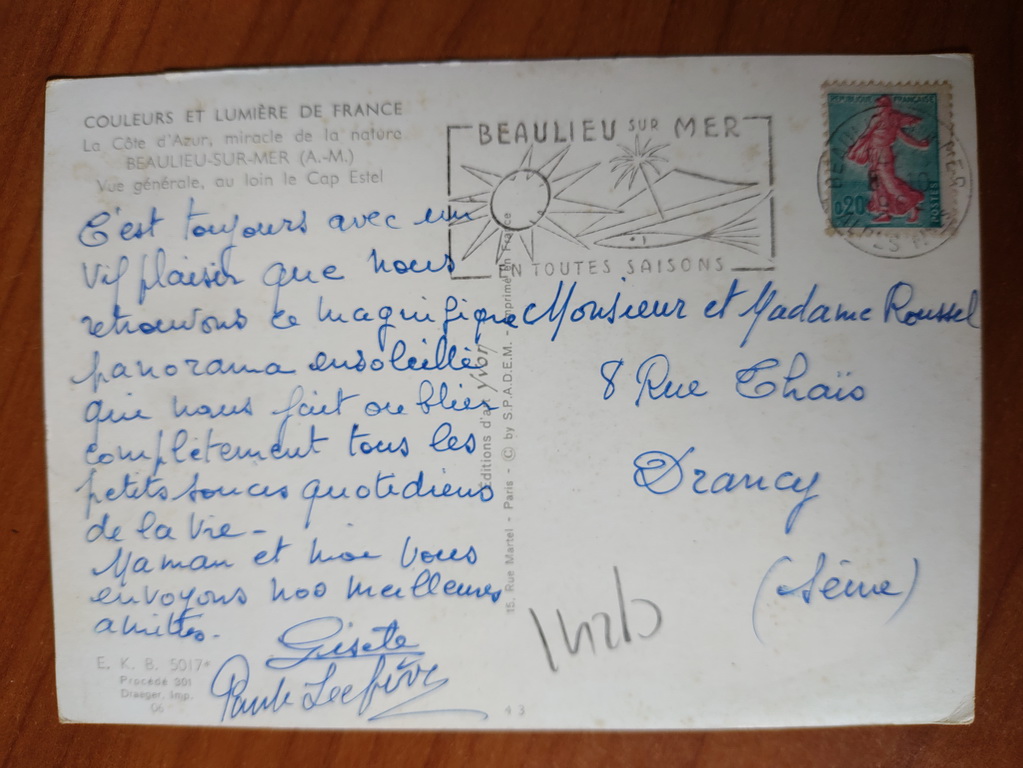 COULEURS ET LUMIÈRE DE FRANCE
La Côte d'Azur, miracle de la nature
BEAULIEU-SUR-MER (A.-M.)
Vue générale, au loin le Cap Estel
C'est toujours avec un
vif plaisir que nous
retrouvons ce magnifique
panorama ensoleillé
qui nous fait oublier
complètement tous les
petits soucis quotidiens
de la vie -
Maman et moi vous
envoyons nos meilleures
amitiés.
Gisèle
Paule Lefèvre
E. K. B. 5017*
Procédé 301
Draeger, Imp.
43
15, Rue Martel - Paris - © by S.P.A.D.E.M. - Imprimé en France
Éditions d'art Yvon
BEAULIEU SUR MER
EN TOUTES SAISONS
REPUBLIQUE FRANÇAISE
0,20
POSTES
Monsieur et Madame Roussel
8 Rue Thaïs
Drancy
(Seine)